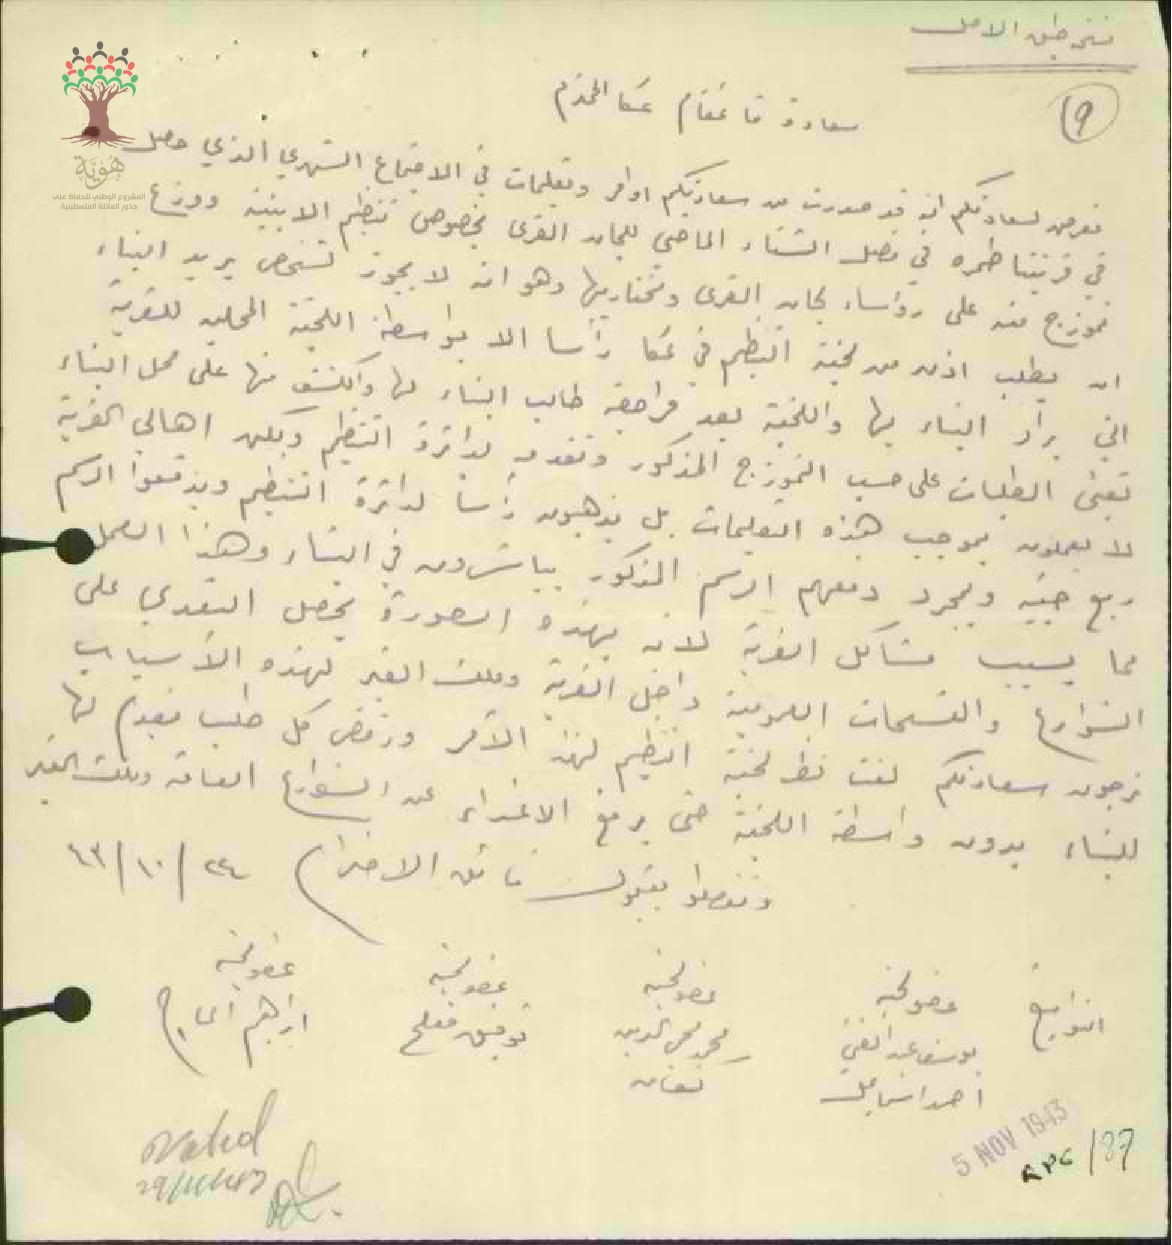 نسخة طبق الاصل
(9
سعادة قائمقام عكا المحترم
نعرض لسعادتكم انه قد صدرت من سعادتكم اوامر وتعليمات في الاجتماع الشهري الذي حصل
في قريتنا طمره في فصل الشتاء الماضي للجان القرى بخصوص تنظيم الابنية ووزع
نموزج منه على رؤساء لجان القرى ومختاريها وهو انه لا يجوز لشخص يريد البناء
ان يطلب اذن من لجنة التنظيم في عكا رأسا الا بواسطة اللجنة المحلية للقرية
التي يراد البناء بها واللجنة بعد مراجعة طالب البناء لها والكشف منها على محل البناء
تعبئ الطلبات على حسب النموزج المذكور وتقدمه لدائرة التنظيم ولكن اهالي القرية
لا يعملون بموجب هذه التعليمات بل يذهبون رأسا لدائرة التنظيم ويدفعوا الرسم
ربع جنيه وبمجرد دفعهم الرسم المذكور يباشرون في البناء وهذا العمل
مما يسبب مشاكل القرية لانه بهذه الصورة يحصل التعدي على
الشوارع والفسحات العمومية داخل القرية وملك الغير لهذه الأسباب
نرجو سعادتكم لفت نظر لجنة التنظيم لهذا الأمر ورفض كل طلب مقدم لها
للبناء بدون واسطة اللجنة حتى يرفع الاعتداء عن الشوارع العامة وملك الغير
وتفضلوا بقبول فائق الاحترام ٢٤/١٠/٤٣
التواقيع
عضو لجنة
يوسف عبد الغني
احمد اسماعيل
عضو لجنة
محمد محي الدين
عضو لجنة
توفيق مفلح
عضو لجنة
ابراهيم الحاج
5 NOV 1943
هُوِيَّة
المشروع الوطني للحفاظ على
جذور العائلة الفلسطينية